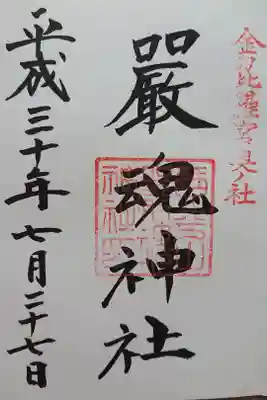 金刀比羅宮奥社
嚴魂神社
平成三十年七月二十七日